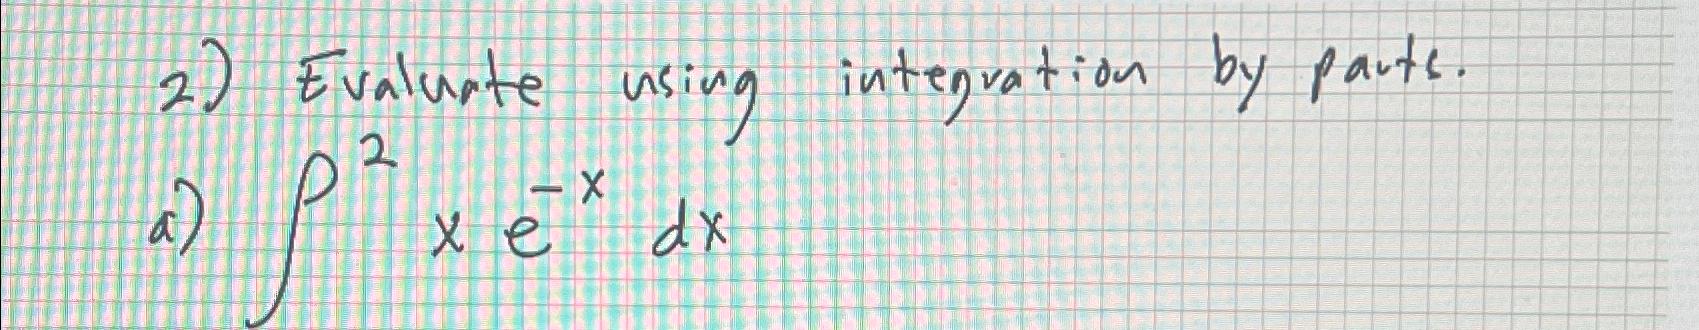 2) Evaluate using integration by parts.
a) ∫² x e⁻ˣ dx